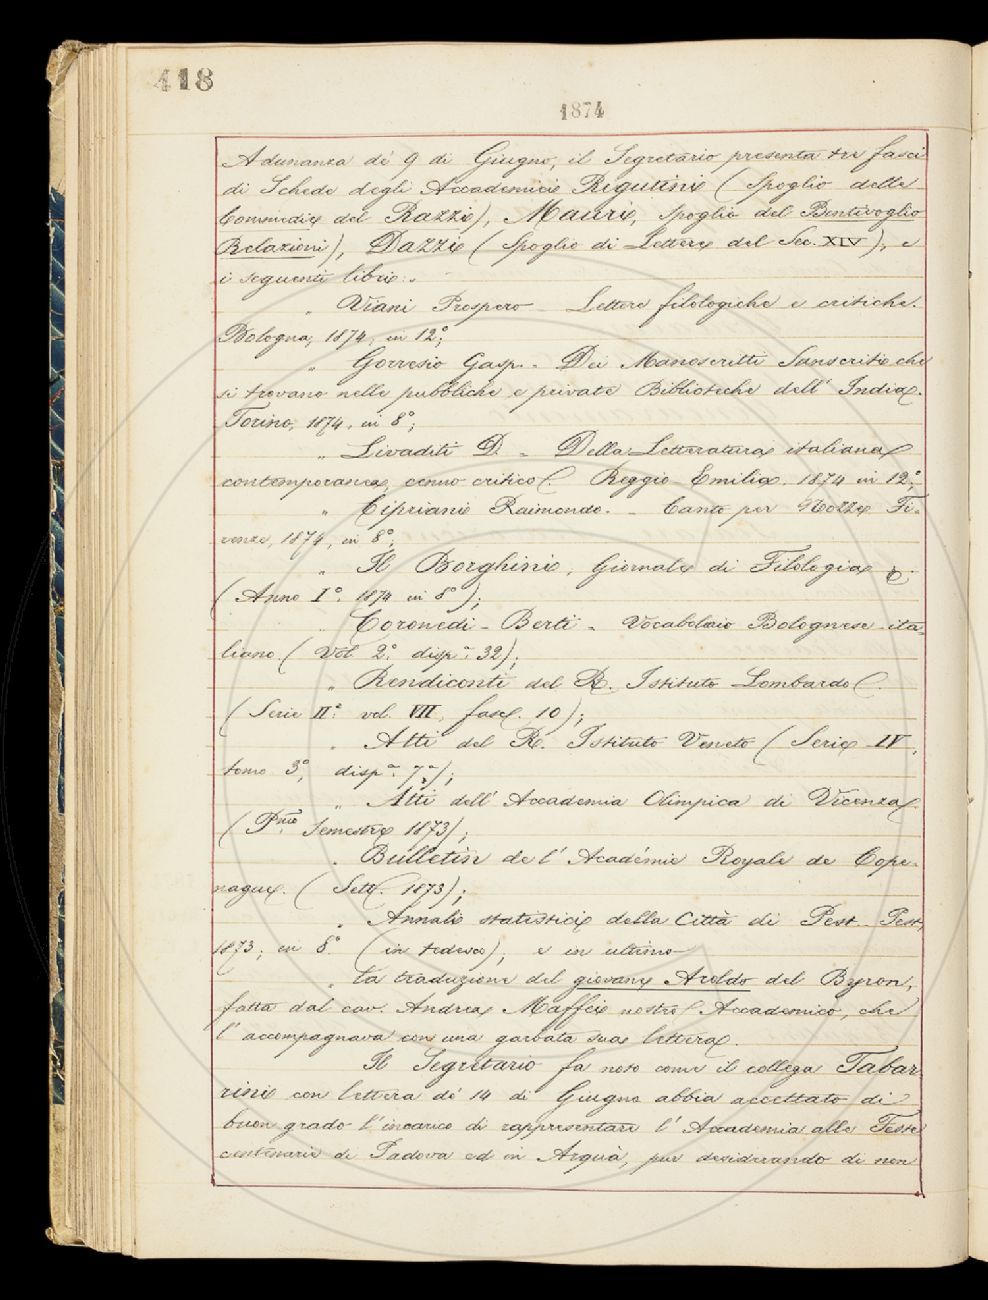 418
1874
Adunanza de' 9 di Giugno, il Segretario presenta tre fasci
di Schede degli Accademici Rigutini (Spoglio delle
Commedie del Razzi), Mauri, Spoglio del Bentivoglio
Relazioni), Dazzi (Spoglio di Lettere del Sec. XIV), e
i seguenti libri:
" Viani Prospero - Lettere filologiche e critiche.
Bologna, 1874, in 12°;
" Gorresio Gasp. - Dei Manoscritti Sanscriti che
si trovano nelle pubbliche e private Biblioteche dell' India.
Torino, 1874, in 8°;
" Livaditi D. - Della Letteratura italiana
contemporanea, cenno critico. Reggio-Emilia, 1874 in 12°;
" Cipriani Raimondo. - Canto per Nozze Fi-
renze, 1874, in 8°;
" Il Borghini, Giornale di Filologia
(Anno I°. 1874 in 8°);
" Coronedi-Berti - Vocabolario Bolognese-ita-
liano (Vol. 2°. disp.ª 32);
" Rendiconti del R. Istituto Lombardo
(Serie IIª. vol. VII, fasc. 10);
" Atti del R. Istituto Veneto (Serie IV,
tomo 3°, disp.ª 7ª);
" Atti dell' Accademia Olimpica di Vicenza
(Pmo Semestre 1873);
" Bulletin de l' Académie Royale de Cope-
nague. (Sett. 1873);
" Annali statistici della Città di Pest. Pest,
1873, in 8° (in tedesco); e in ultimo
" la traduzione del giovane Aroldo del Byron,
fatta dal cav. Andrea Maffei nostro Accademico, che
l' accompagnava con una garbata sua lettera.
Il Segretario fa noto come il collega Tabar
rini con lettera de' 14 di Giugno abbia accettato di
buon grado l' incarico di rappresentare l' Accademia alle Feste
centenarie di Padova ed in Arquà, pur desiderando di non